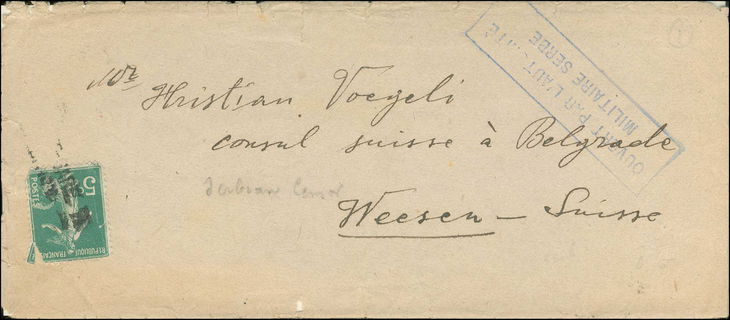 Mr
Hristian Voegeli
consul suisse à Belgrade
Weesen – Suisse
Serbian Censor
OUVERT PAR L'AUTORITÉ
MILITAIRE SERBE
5
POSTES
REPUBLIQUE FRANÇAISE
1